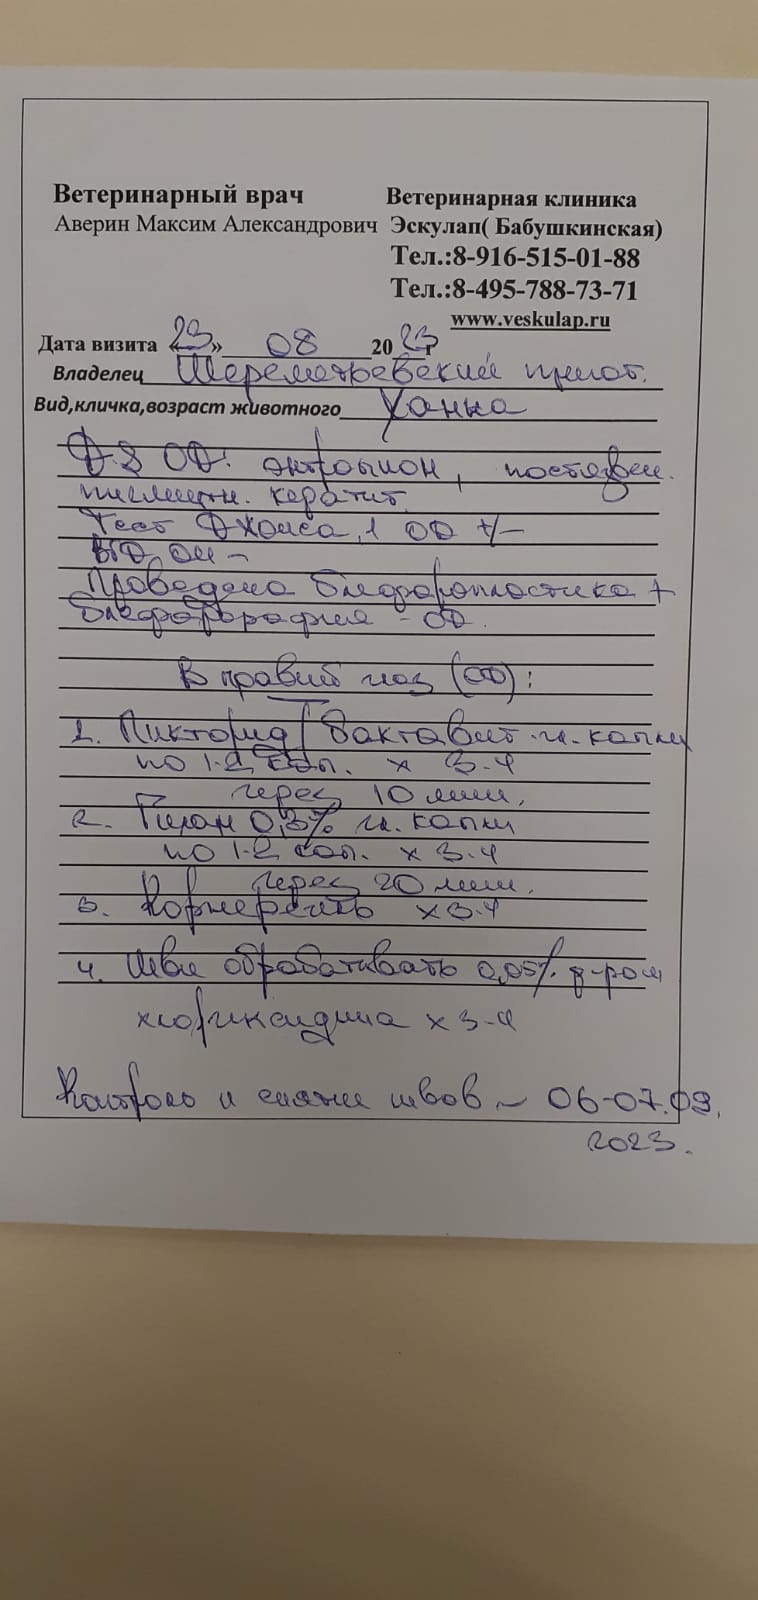 Ветеринарный врач
Аверин Максим Александрович
Ветеринарная клиника
Эскулап( Бабушкинская)
Тел.:8-916-515-01-88
Тел.:8-495-788-73-71
www.veskulap.ru
Дата визита «23» 08 2023г
Владелец Шереметьевский приют.
Вид,кличка,возраст животного Ханка
DS OD: энтропион, постязвен.
пигментн. кератит.
Тест Джонса, 1 OD +/-
ВГД
Проведена блефаропластика +
блефарорафия - OD.
В правый глаз (OD):
1. Пикторид/Бактавит гл. капли
по 1-2 кап. x 3-4
через 10 мин.
2. Гилан 0,3% гл. капли
по 1-2 кап. x 3-4
через 20 мин.
3. Корнерегель x 3-4
4. Швы обрабатывать 0,05% р-ром
хлоргиксидина x 3-4
Контроль и снятие швов ~ 06-07.09.
2023.